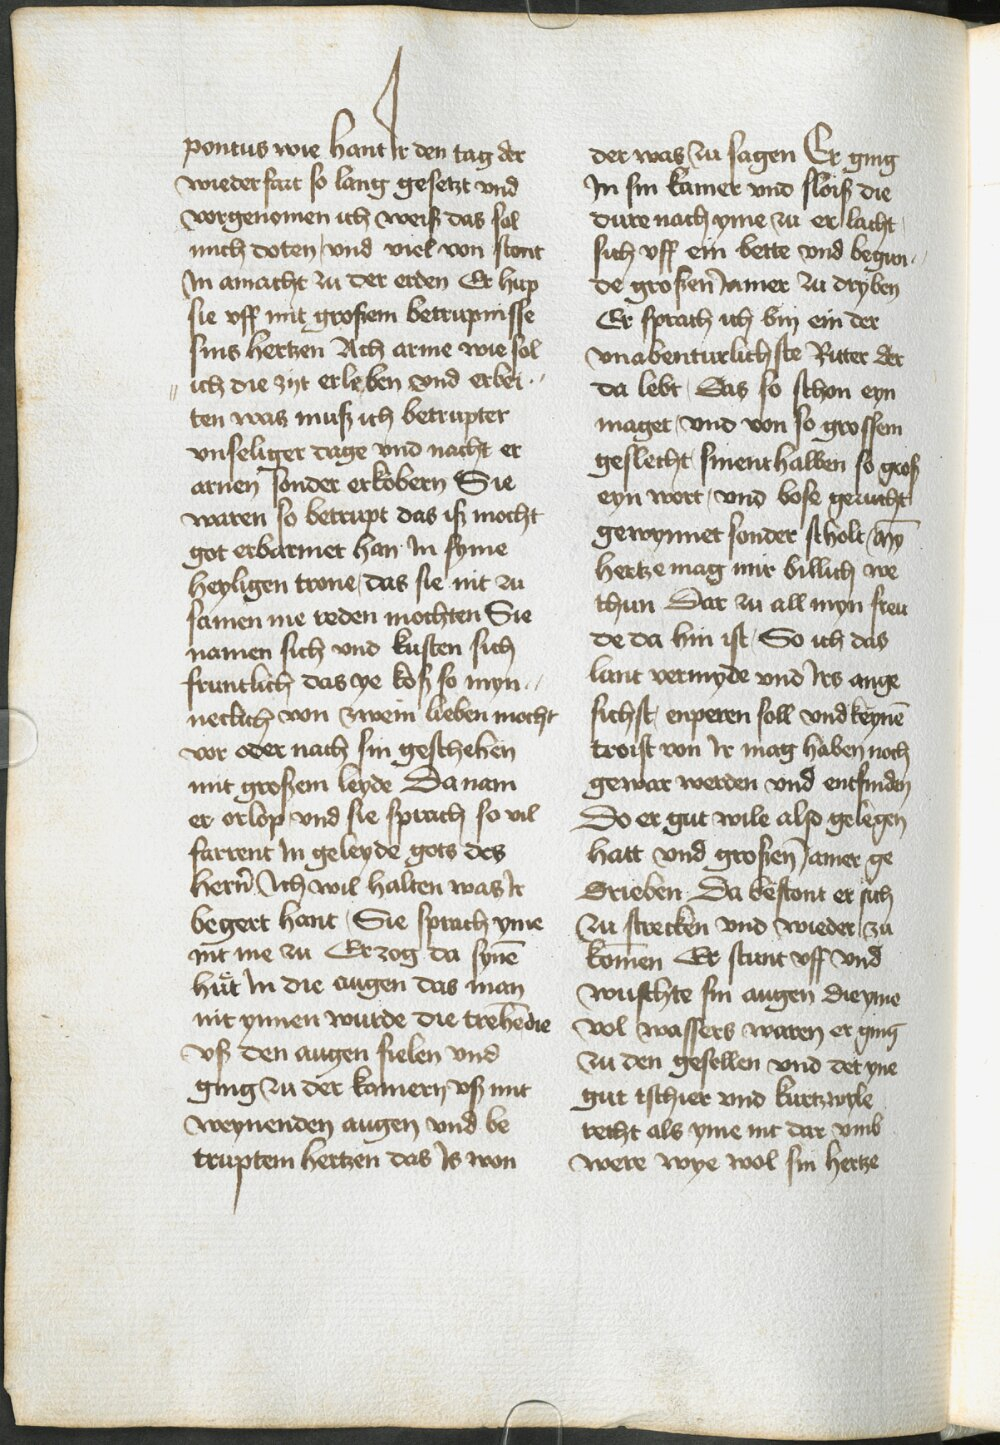 pontus wie hant Ir den tag der
wiederfart so lang gesetzt vnd
vorgenomen ich weiß das sol
mich doten / vnd viel von stont
In amacht zu der erden Er hup
sie vff mit großem betrupnisse
sins hertzen Ach arme wie sol
ich die zijt erleben vnd erbei-
ten was muß ich betrupter
vnseliger dage vnd nacht er
arnen sonder erkobern Sie
waren so betrupt das iß mocht
got erbarmet han In syme
heyligen trone / das sie nit zu
samen me reden mochten Sie
namen sich vnd kusten sich
fruntlich das ye koß so myn-
neclich von zwein lieben mocht
vor oder nach sin geschehen
mit großem leyde Da nam
er orlop vnd sie sprach so vil
farrent In geleyde gots des
hern Ich wil halten was Ir
begert hant / Sie sprach yme
nit me zu Er zog da synē
hut In die augen das man
nit ynnen wurde die trehē die
vß den augen fielen vnd
ging zu der kamern vß mit
weynenden augen vnd be
truptem hertzen das Is won
der was zu sagen Er ging
In sin kamer vnd sloiß die
dure nach yme zu er lacht
sich vff ein bette vnd begun-
de großen Jamer zu dryben
Er sprach ich bin ein der
vnabenturlichste Ritter der
da lebt / Das so schon eyn
maget / vnd von so grossem
geslecht / sinenthalben so groß
eyn wort / vnd bose gerucht
gewynnet sonder scholt / myn
hertze mag mir billich we
thun Dar zu all myn freu
de da hin ist / So ich das
lant vermyde vnd Irs ange
sichst / enperen soll vnd keynē
troist von Ir mag haben noch
gewar werden vnd entfinden
Do er gut wile also gelegen
hatt vnd großen Jamer ge
drieben Da bestont er sich
zu strecken vnd wieder zu
komen Er stunt vff vnd
wuschte sin augen die yme
vol wassers waren er ging
zu den gesellen vnd det yne
gut tschier vnd kurtzwyle
recht als yme nit dar vmb
were wye wol sin hertze